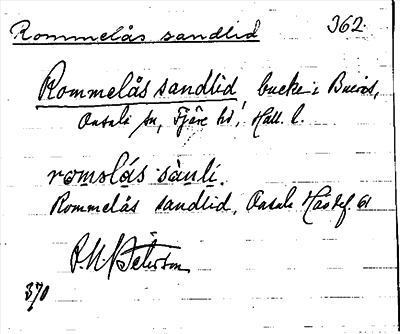 Rommelås sandlid 362.
Rommelås sandlid backe i Buerås,
Onsala sn, Fjäre hd, Hall. l.
romolås sànli.
Rommelås sandlid, Onsala Häradsf. 61
P. N. Peterson
370